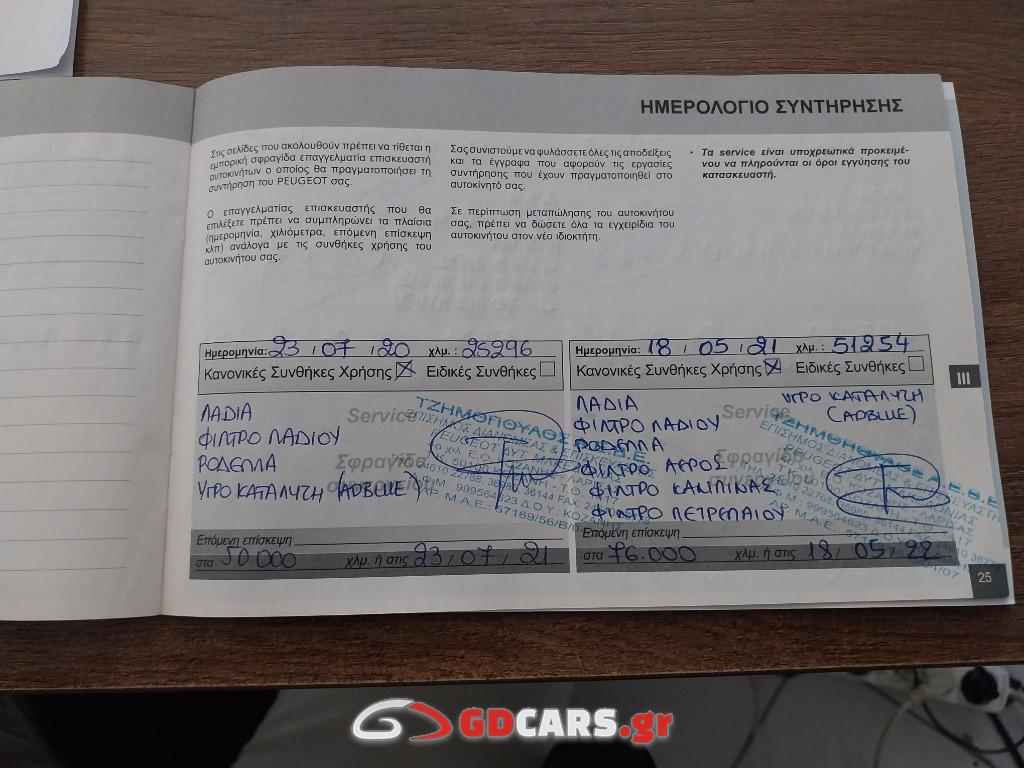 ΗΜΕΡΟΛΟΓΙΟ ΣΥΝΤΗΡΗΣΗΣ
Στις σελίδες που ακολουθούν πρέπει να τίθεται η
εμπορική σφραγίδα επαγγελματία επισκευαστή
αυτοκινήτων ο οποίος θα πραγματοποιήσει τη
συντήρηση του PEUGEOT σας.
Ο επαγγελματίας επισκευαστής που θα
επιλέξετε πρέπει να συμπληρώνει τα πλαίσια
(ημερομηνία, χιλιόμετρα, επόμενη επίσκεψη
κλπ) ανάλογα με τις συνθήκες χρήσης του
αυτοκινήτου σας.
Σας συνιστούμε να φυλάσσετε όλες τις αποδείξεις
και τα έγγραφα που αφορούν τις εργασίες
συντήρησης που έχουν πραγματοποιηθεί στο
αυτοκίνητό σας.
Σε περίπτωση μεταπώλησης του αυτοκινήτου
σας, πρέπει να δώσετε όλα τα εγχειρίδια του
αυτοκινήτου στον νέο ιδιοκτήτη.
• Τα service είναι υποχρεωτικά προκειμέ-
νου να πληρούνται οι όροι εγγύησης του
κατασκευαστή.
Ημερομηνία: 23 / 07 / 20 χλμ. : 25296
Κανονικές Συνθήκες Χρήσης Ειδικές Συνθήκες
Service
ΛΑΔΙΑ
ΦΙΛΤΡΟ ΛΑΔΙΟΥ
ΡΟΔΕΛΛΑ
ΥΓΡΟ ΚΑΤΑΛΥΤΗ (ADBLUE)
Σφραγίδα
Επόμενη επίσκεψη
στα 50.000 χλμ. ή στις 23 / 07 / 21
Ημερομηνία: 18 / 05 / 21 χλμ. : 51254
Κανονικές Συνθήκες Χρήσης Ειδικές Συνθήκες
Service
ΛΑΔΙΑ
ΦΙΛΤΡΟ ΛΑΔΙΟΥ
ΡΟΔΕΛΛΑ
ΦΙΛΤΡΟ ΑΕΡΟΣ
ΦΙΛΤΡΟ ΚΑΜΠΙΝΑΣ
ΦΙΛΤΡΟ ΠΕΤΡΕΛΑΙΟΥ
ΥΓΡΟ ΚΑΤΑΛΥΤΗ
(ADBLUE)
Σφραγίδα
Επόμενη επίσκεψη
στα 76.000 χλμ. ή στις 18 / 05 / 22
III
25
GDCARS.gr